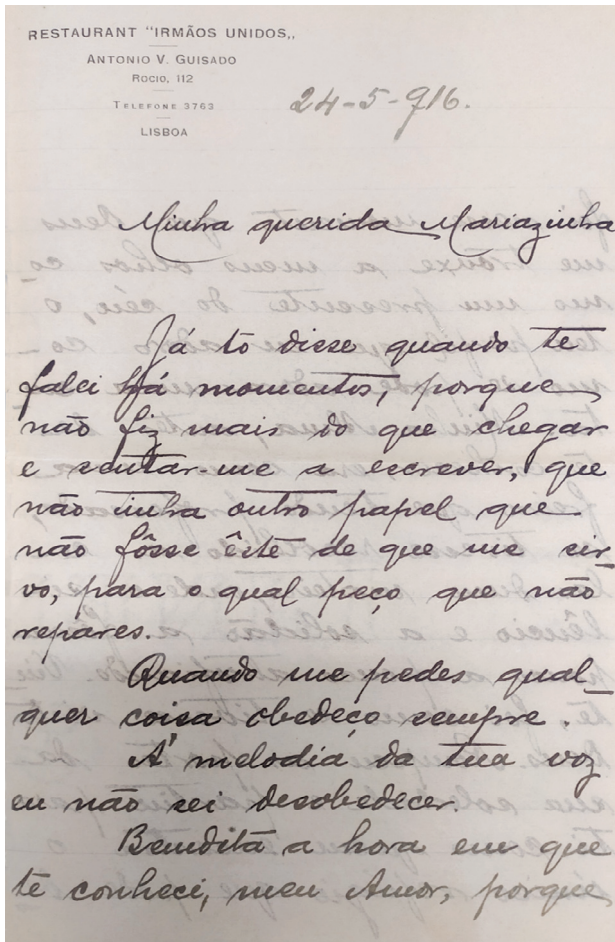 RESTAURANT "IRMÃOS UNIDOS„
ANTONIO V. GUISADO
ROCIO, 112
TELEFONE 3763
LISBOA
24-5-916.
Minha querida Mariazinha
Já to disse quando te
falei há momentos, porque
não fiz mais do que chegar
e sentar-me a escrever, que
não tinha outro papel que
não fôsse êste de que me sir_
vo, para o qual peço que não
repares.
Quando me pedes qual_
quer coisa obedeço sempre.
Á melodia da tua voz
eu não sei desobedecer.
Bemdita a hora em que
te conheci, meu Amor, porque